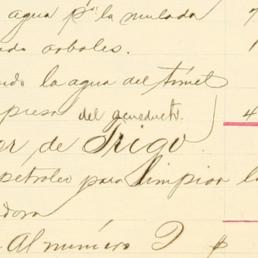 agua pa la mulada
arboles.
la agua del túnel
presa del acueducto
de Trigo.
petroleo para limpiar l
dora
Al número 2 $